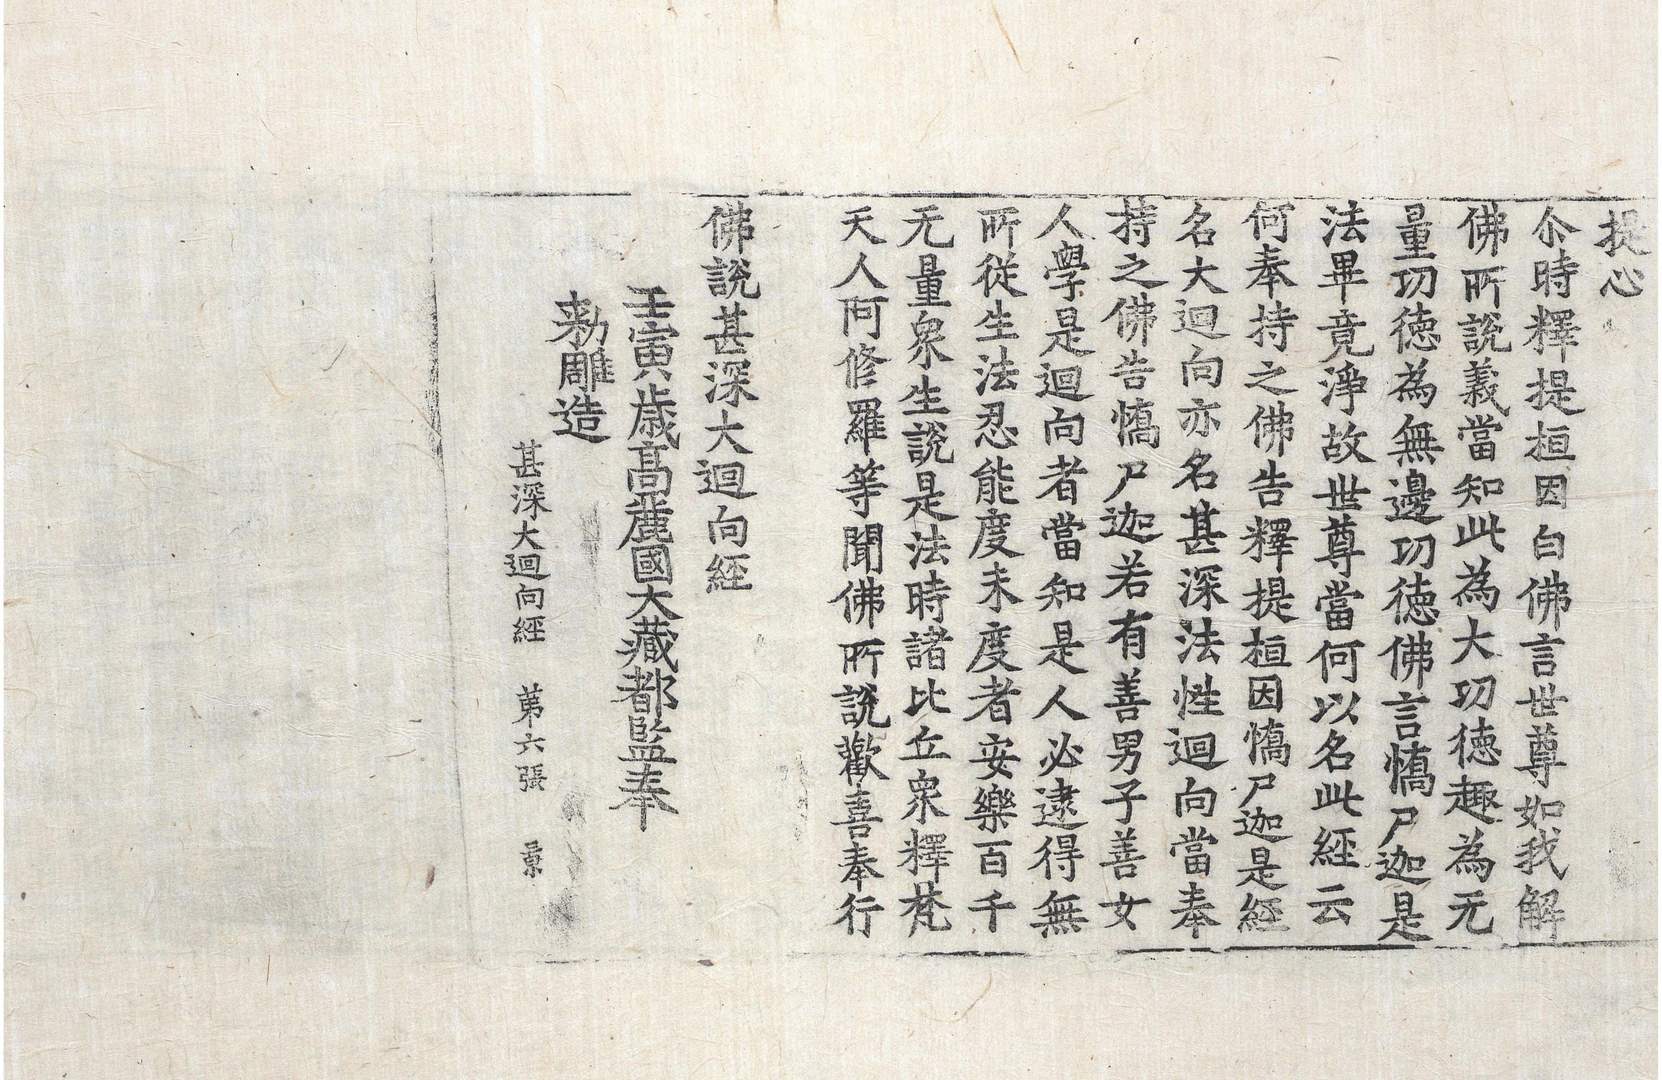 提心
尒時釋提桓因白佛言世尊如我解
佛所說義當知此為大功德趣為无
量功德為無邊功德佛言憍尸迦是
法畢竟淨故世尊當何以名此經云
何奉持之佛告釋提桓因憍尸迦是經
名大迴向亦名甚深法性迴向當奉
持之佛告憍尸迦若有善男子善女
人學是迴向者當知是人必逮得無
所從生法忍能度未度者安樂百千
无量衆生說是法時諸比丘衆釋梵
天人阿修羅等聞佛所說歡喜奉行
佛說甚深大迴向經
壬寅歳高麗國大藏都監奉
勑雕造
甚深大迴向經 第六張 景